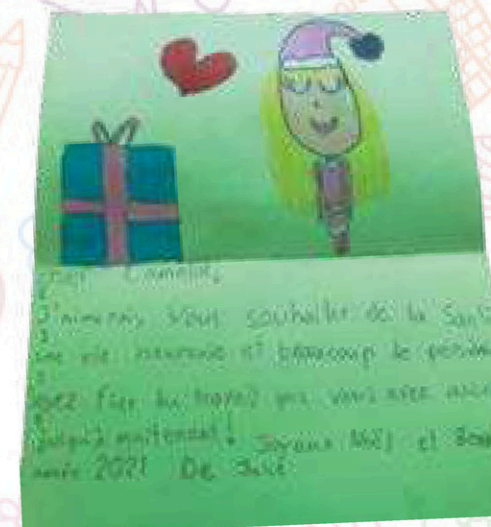 Camélia,
J'aimerais vous souhaiter de la Santé
une vie heureuse et beaucoup de
soyez fier du travail que vous avez
jusqu'à maintenant! Joyeux Noël et Bonne
année 2021 De